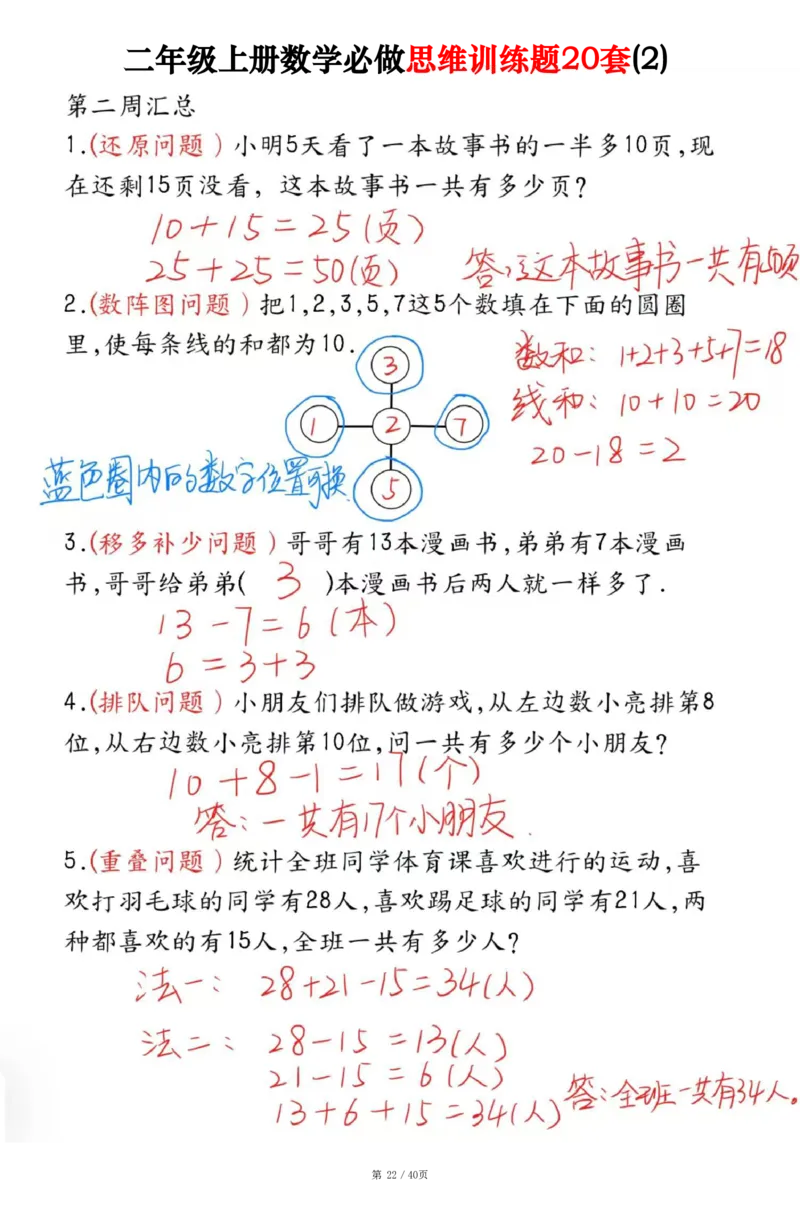 二年级上册数学必做思维训练题20套(2)
第二周汇总
1.(还原问题)小明5天看了一本故事书的一半多10页,现
在还剩15页没看，这本故事书一共有多少页?
10+15=25(页)
25+25=50(页)
答:这本故事书一共有50页
2.(数阵图问题)把1,2,3,5,7这5个数填在下面的圆圈
里,使每条线的和都为10.
数和: 1+2+3+5+7=18
线和: 10+10=20
20-18=2
3
1 2 7
5
蓝色圈内的数字位置可换
3.(移多补少问题)哥哥有13本漫画书,弟弟有7本漫画
书,哥哥给弟弟( 3 )本漫画书后两人就一样多了.
13-7=6(本)
6=3+3
4.(排队问题)小朋友们排队做游戏,从左边数小亮排第8
位,从右边数小亮排第10位,问一共有多少个小朋友?
10+8-1=17(个)
答:一共有17个小朋友.
5.(重叠问题)统计全班同学体育课喜欢进行的运动,喜
欢打羽毛球的同学有28人,喜欢踢足球的同学有21人,两
种都喜欢的有15人,全班一共有多少人?
法一: 28+21-15=34(人)
法二: 28-15=13(人)
21-15=6(人)
13+6+15=34(人)
答:全班一共有34人。
第 22 / 40页